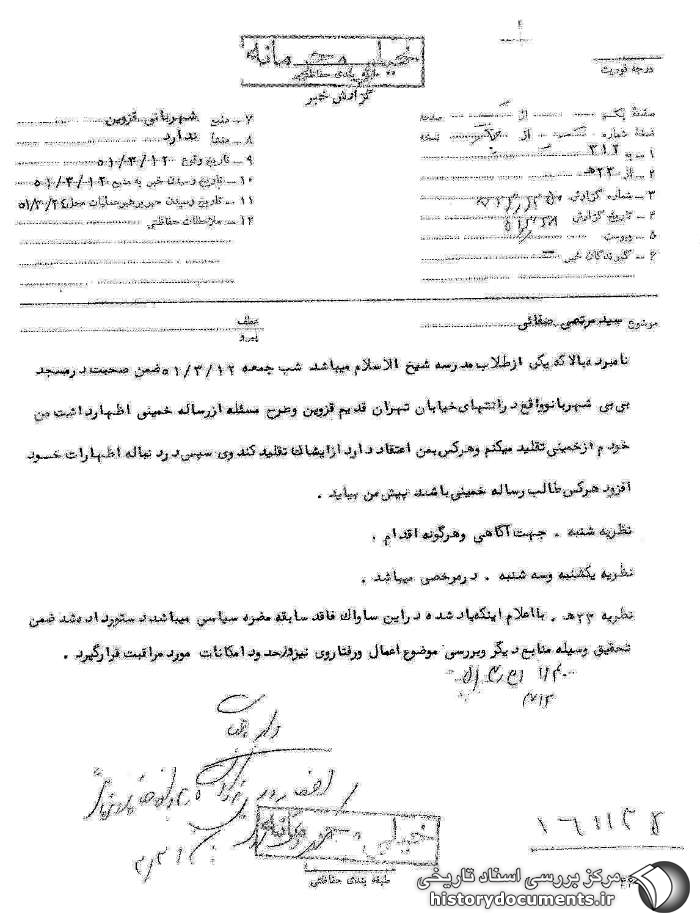 خیلی محرمانه
طبقه بندی حفاظتی
گزارش خبر
درجه فوریت
صفحه یک از صفحه
نسخه شماره از نسخه
۱ – به ۳۱۲
۲ – از ۲۳ه‍
۳ – شماره گزارش
۴ – تاریخ گزارش
۵ – پیوست
۶ – گیرندگان خبر –
۷ – منبع شهربانی قزوین
۸ – منشأ ندارد
۹ – تاریخ وقوع ۵۱/۳/۱۲
۱۰ – تاریخ رسیدن خبر به منبع ۵۱/۳/۱۲
۱۱ – تاریخ رسیدن خبر برهبر عملیات محل ۵۱/۳/۲۴
۱۲ – ملاحظات حفاظتی
موضوع سید مرتضی صفائی
عطف
پیرو
نامبرده بالا که یکی از طلاب مدرسه شیخ الاسلام میباشد شب جمعه ۵۱/۳/۱۲ ضمن صحبت در مسجد
بی بی شهربانو واقع در انتهای خیابان تهران قدیم قزوین و طرح مسئله از رساله خمینی اظهار داشت من
خودم از خمینی تقلید میکنم و هرکس بمن اعتقاد دارد از ایشان تقلید کند وی سپس در دنباله اظهارات خود
افزود هرکس طالب رساله خمینی باشد پیش من بیاید .
نظریه شنبه . جهت آگاهی و هرگونه اقدام .
نظریه یکشنبه و سه شنبه . در مرخصی میباشد .
نظریه ۲۳ه‍ . با اعلام اینکه یاد شده در این ساواک فاقد سابقه مضره سیاسی میباشد دستور داده شد ضمن
تحقیق وسیله منابع دیگر و بررسی موضوع اعمال و رفتار وی نیز در حدود امکانات مورد مراقبت قرار گیرد .
خیلی محرمانه
طبقه بندی حفاظتی
مرکز بررسی اسناد تاریخی
historydocuments.ir